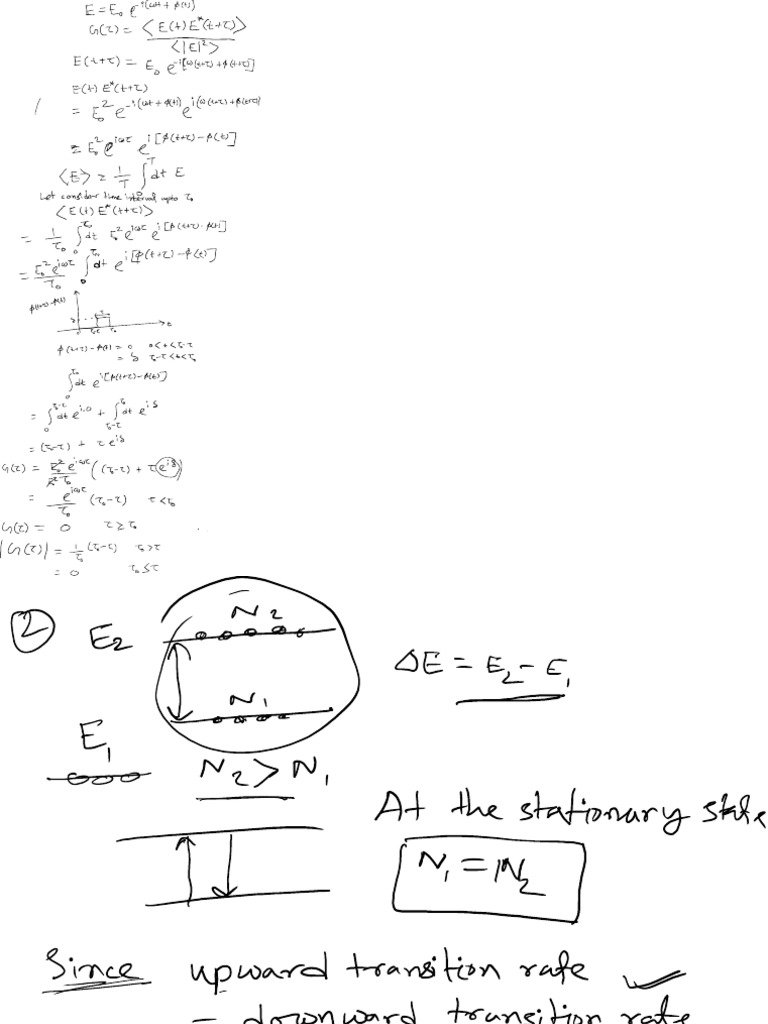 E = E₀ e^{i(ωt + φ(t))}
G(τ) = <E(t) E*(t+τ)> / <|E|²>
E(t+τ) = E₀ e^{-i[ω(t+τ) + φ(t+τ)]}
E(t) E*(t+τ)
= E₀² e^{-i(ωt + φ(t))} e^{i(ω(t+τ) + φ(t+τ))}
= E₀² e^{iωτ} e^{i[φ(t+τ) - φ(t)]}
<E> = 1/T ∫₀^T dt E
Let consider time interval upto τ₀
<E(t) E*(t+τ)>
= 1/τ₀ ∫₀^{τ₀} dt E₀² e^{iωτ} e^{i[φ(t+τ) - φ(t)]}
= E₀² e^{iωτ}/τ₀ ∫₀^{τ₀} dt e^{i[φ(t+τ) - φ(t)]}
φ(t+τ) - φ(t)
φ(t+τ) - φ(t) = 0 0<t<τ₀-τ
= δ τ₀-τ<t<τ₀
∫₀^{τ₀} dt e^{i[φ(t+τ) - φ(t)]}
= ∫₀^{τ₀-τ} dt e^{i.0} + ∫_{τ₀-τ}^{τ₀} dt e^{iδ}
= (τ₀-τ) + τ e^{iδ}
G(τ) = E₀² e^{iωτ}/E₀² τ₀ ((τ₀-τ) + τ e^{iδ})
= e^{iωτ}/τ₀ (τ₀-τ) τ<τ₀
G(τ) = 0 τ ≥ τ₀
|G(τ)| = 1/τ₀ (τ₀-τ) τ₀>τ
= 0 τ₀ ≤ τ
② E₂ N₂
ΔE = E₂ - E₁
N₁
E₁
N₂ > N₁
At the stationary state
N₁ = N₂
Since upward transition rate
= downward transition rate